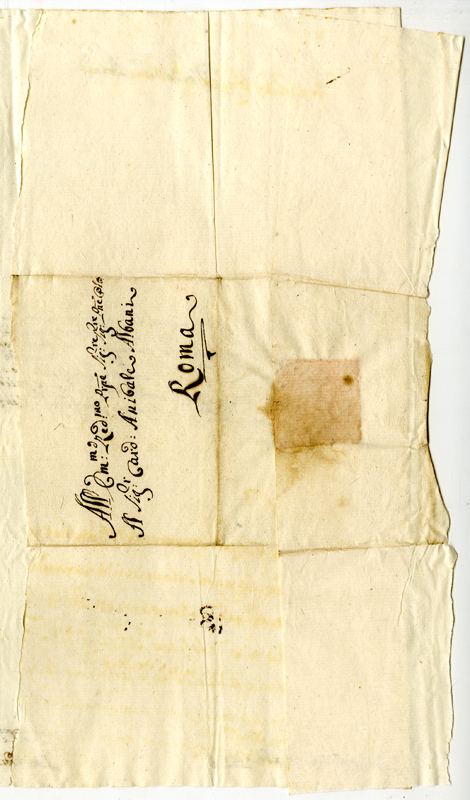 All' Em:mo Red:mo Prpe Sig:re Sig:re
Il Sig:r Card: Anibale Albani
Roma